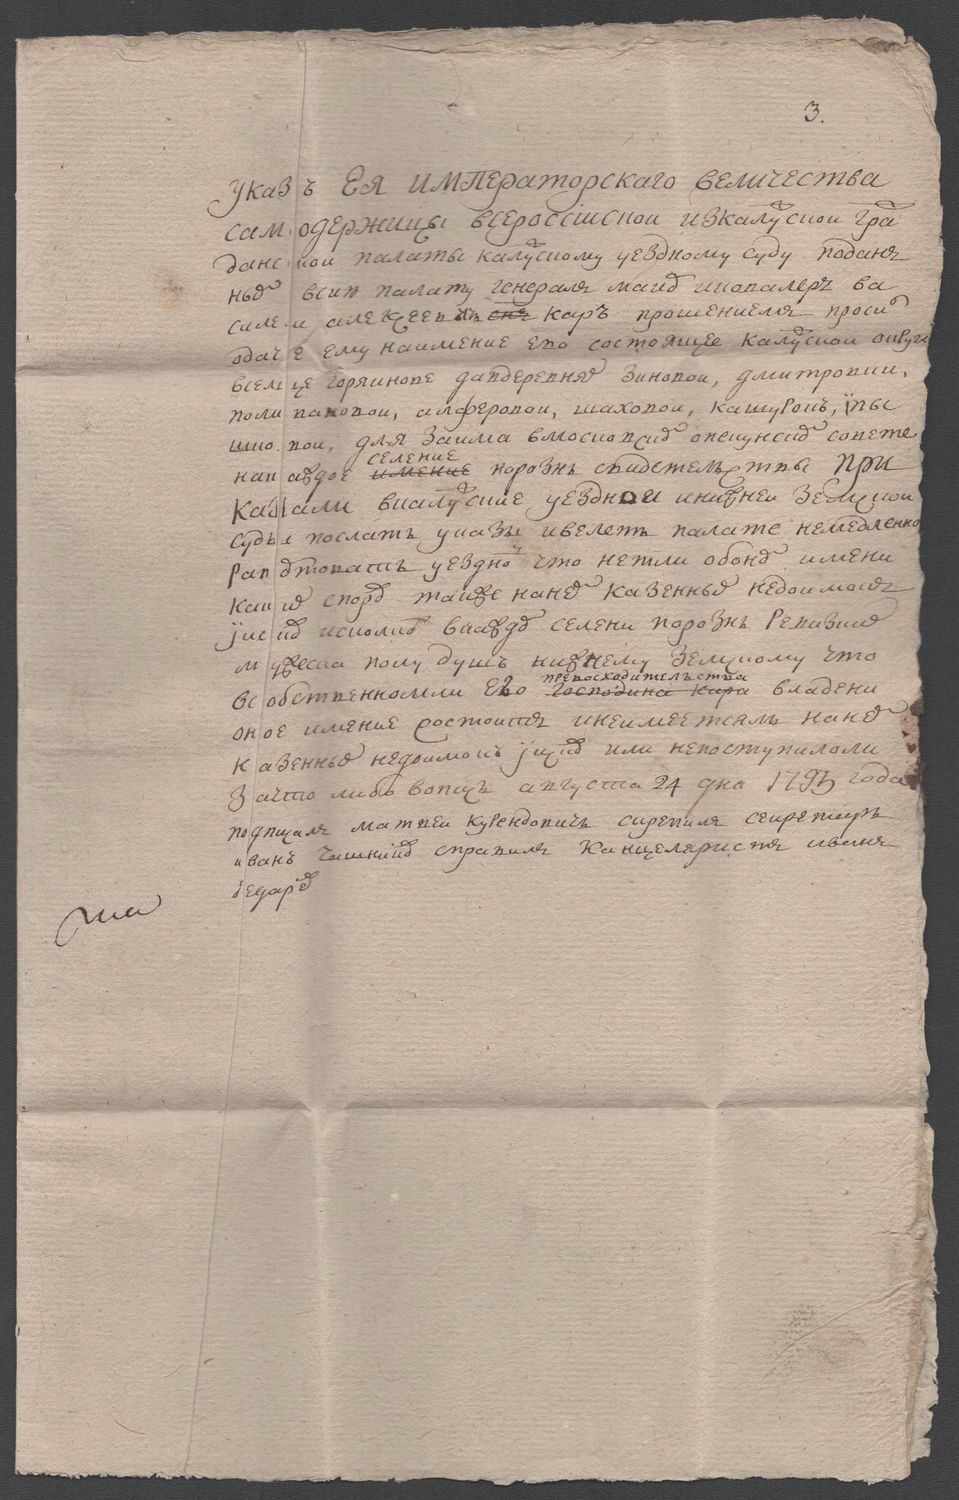 3.
Указъ Ея императорскаго величества
самодержицы всероссiискои искалускои гра
данскои палаты калускому уездному суду поданъ
ные всию палату генерала маио и ковалеръ ва
силеи алексеевичь сня каръ прошениемъ проси
одаче ему наимение ево состоящее калускои округи
вселце горяинове здеревнею зиновои, дмитровки,
поливановои, алферовои, шаховои, кашурокъ,
для заима вмосковско опекунско совете
накаждое имение селение порознь свидетелства при
казали вкалуские уезднои инижнеи земскои
суды послать указы ивелеть палате немедленно
рапортовать уездно что нетли обоном имени
каких спором также наных казенных недоимокъ
исковъ исколко вкаждо селени порознь ревизских
мужеска полу душъ нижнему земскому что
всобственномли ево господина кара превосходителства владени
оное имение состоитъ инеимеетсяль нанем
казенных недоимокъ исковъ или непоступилоли
зачто либо вопись августа 24 дня 179 года
подписалъ матвеи скрепилъ секретарь
иванъ справилъ Канцеляристъ иванъ